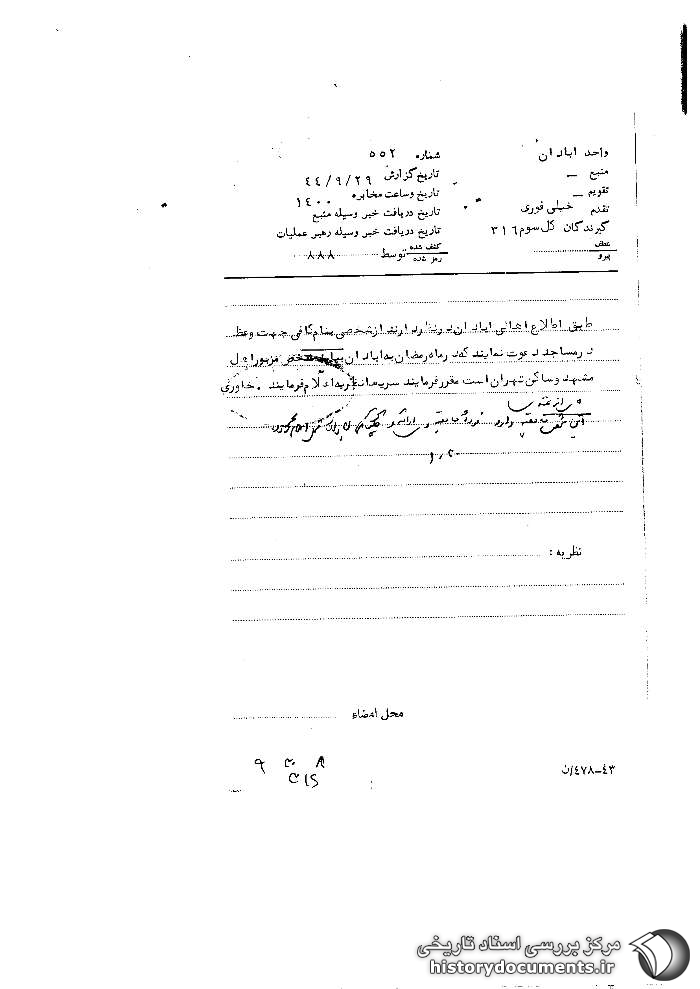 واحد ابادان
منبع –
تقویم –
تقدم خیلی فوری
گیرندگان کل سوم ۳۱۶
عطف
پیرو
شماره ۵۵۲
تاریخ گزارش ٤٤/۹/۲۹
تاریخ و ساعت مخابره ۱٤۰۰
تاریخ دریافت خبر وسیله منبع
تاریخ دریافت خبر وسیله رهبر عملیات
کشف شده
رمز شده
توسط ۸۸۸
طبق اطلاع اهالی ابادان در نظر دارند از شخصی بنام کافی جهت وعظ
در مساجد دعوت نمایند که در ماه رمضان به ابادان بیاید شخص مزبور اهل
مشهد و ساکن تهران است مقرر فرمایند سریعا نظریه اعلام فرمایند . خاوری
۱۰/۲
نظریه :
محل امضاء
٤۳–٤۷۸/ن
مرکز بررسی اسناد تاریخی
historydocuments.ir